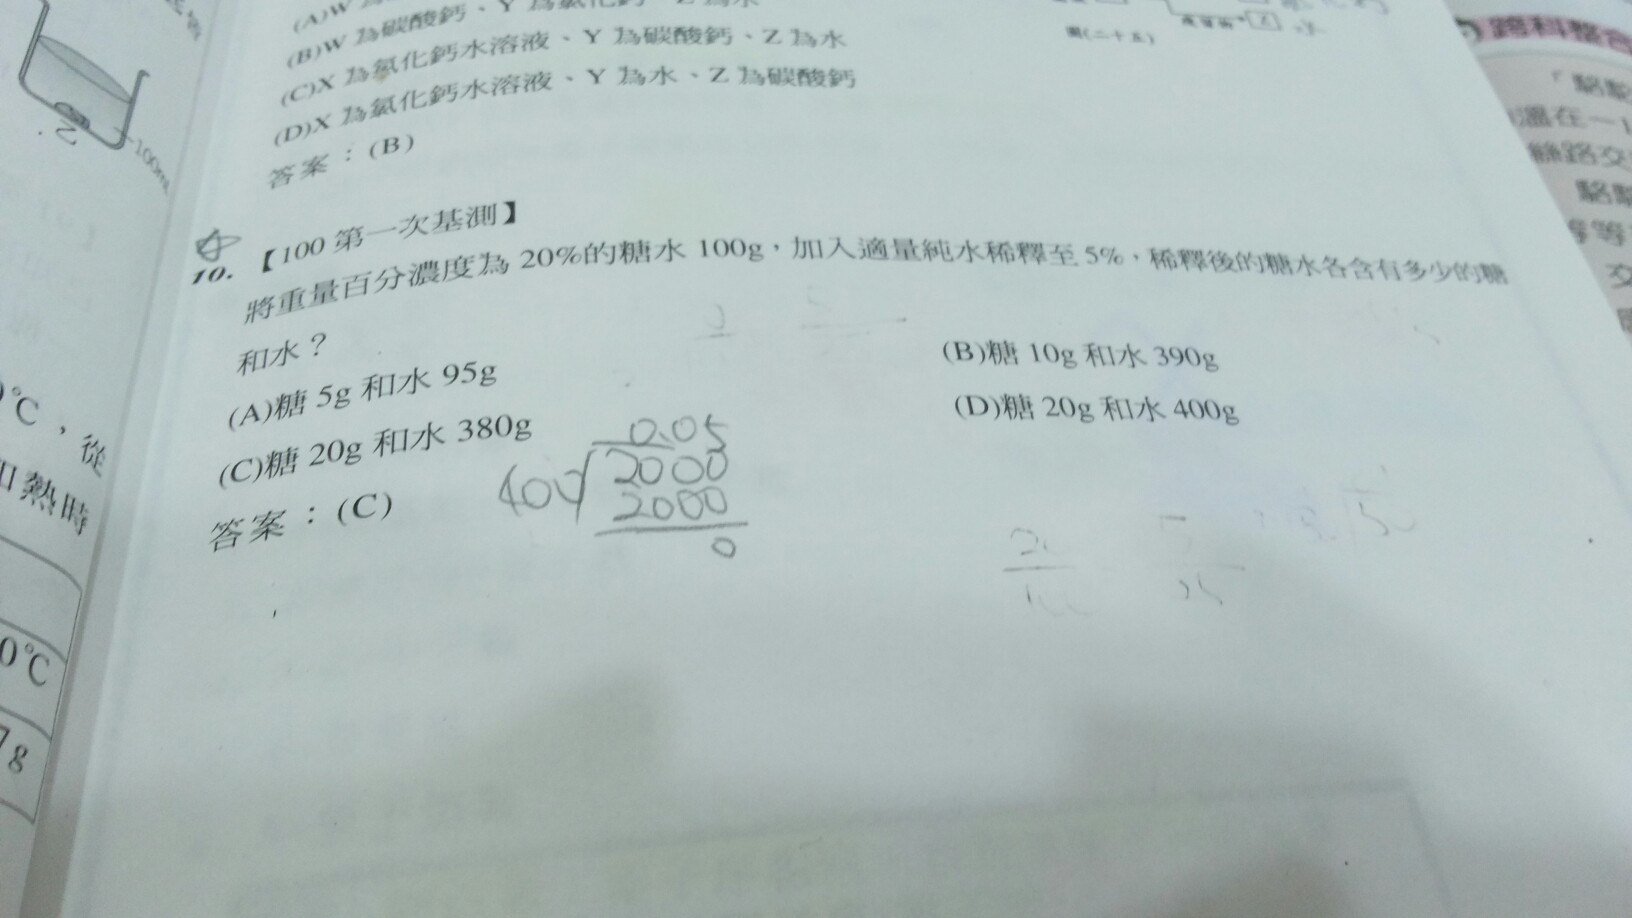 (B)W 為碳酸鈣、Y
(C)X 為氯化鈣水溶液、Y 為碳酸鈣、Z 為水
(D)X 為氯化鈣水溶液、Y 為水、Z 為碳酸鈣
答案：(B)
圖(二十五)
10.【100 第一次基測】
將重量百分濃度為 20%的糖水 100g，加入適量純水稀釋至 5%，稀釋後的糖水各含有多少的糖
和水？
(A)糖 5g 和水 95g
(B)糖 10g 和水 390g
(C)糖 20g 和水 380g
(D)糖 20g 和水 400g
答案：(C)
0.05
400 2000
2000
0
乙
100mL
℃，從
熱時
0℃
7g
跨科整合
「駱駝
溫在一
絲路交
駱駝
等等
交